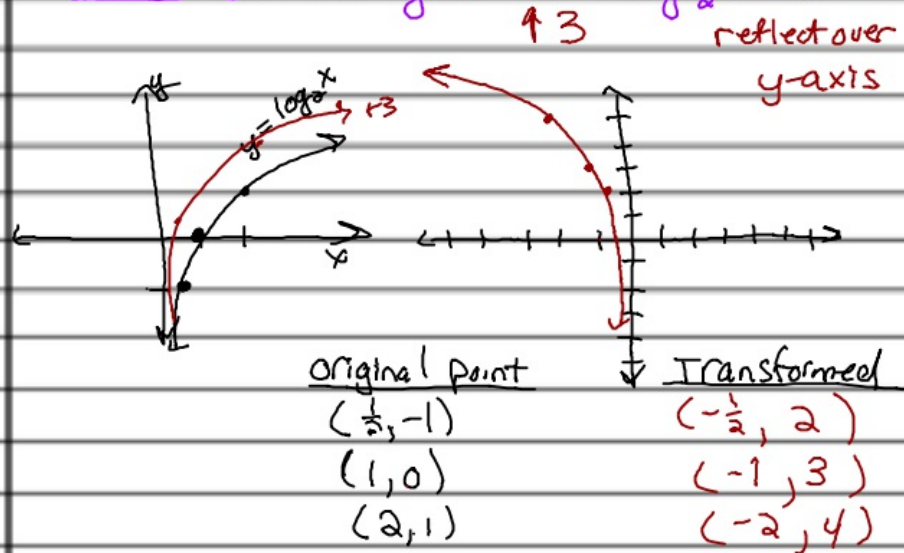 ↑3
reflect over
y-axis
y
y = log₂x
+3
x
original point
Transformed
(½, -1)
(-½, 2)
(1, 0)
(-1, 3)
(2, 1)
(-2, 4)